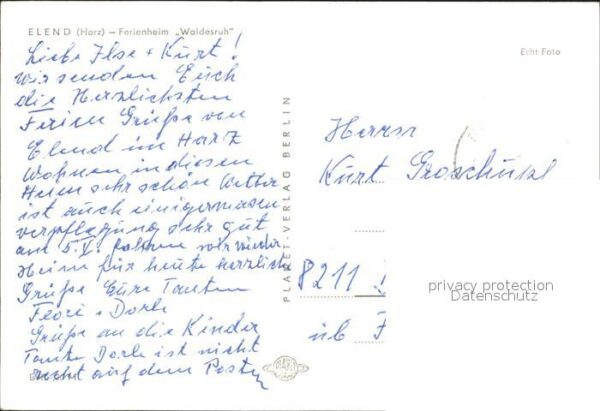 ELEND (Harz) – Ferienheim „Waldesruh"
Echt Foto
Liebe Ilse + Kurt!
wir senden Euch
die Herzlichsten
Ferien Grüße von
Elend im Harz
Wohnen in diesen
Heim sehr schön Wetter
ist auch einigermasen
verpflegung sehr gut
am 5.V. fahren wir wieder
Heim für heute herzlich
Grüße Eure Tanten
Flori + Dorle
Grüße an die Kinder
Tante Dorle ist nicht
recht auf dem Posten
PLANET-VERLAG BERLIN
PLANET
Herrn
Kurt Groschützl
8211
üb F
privacy protection
Datenschutz